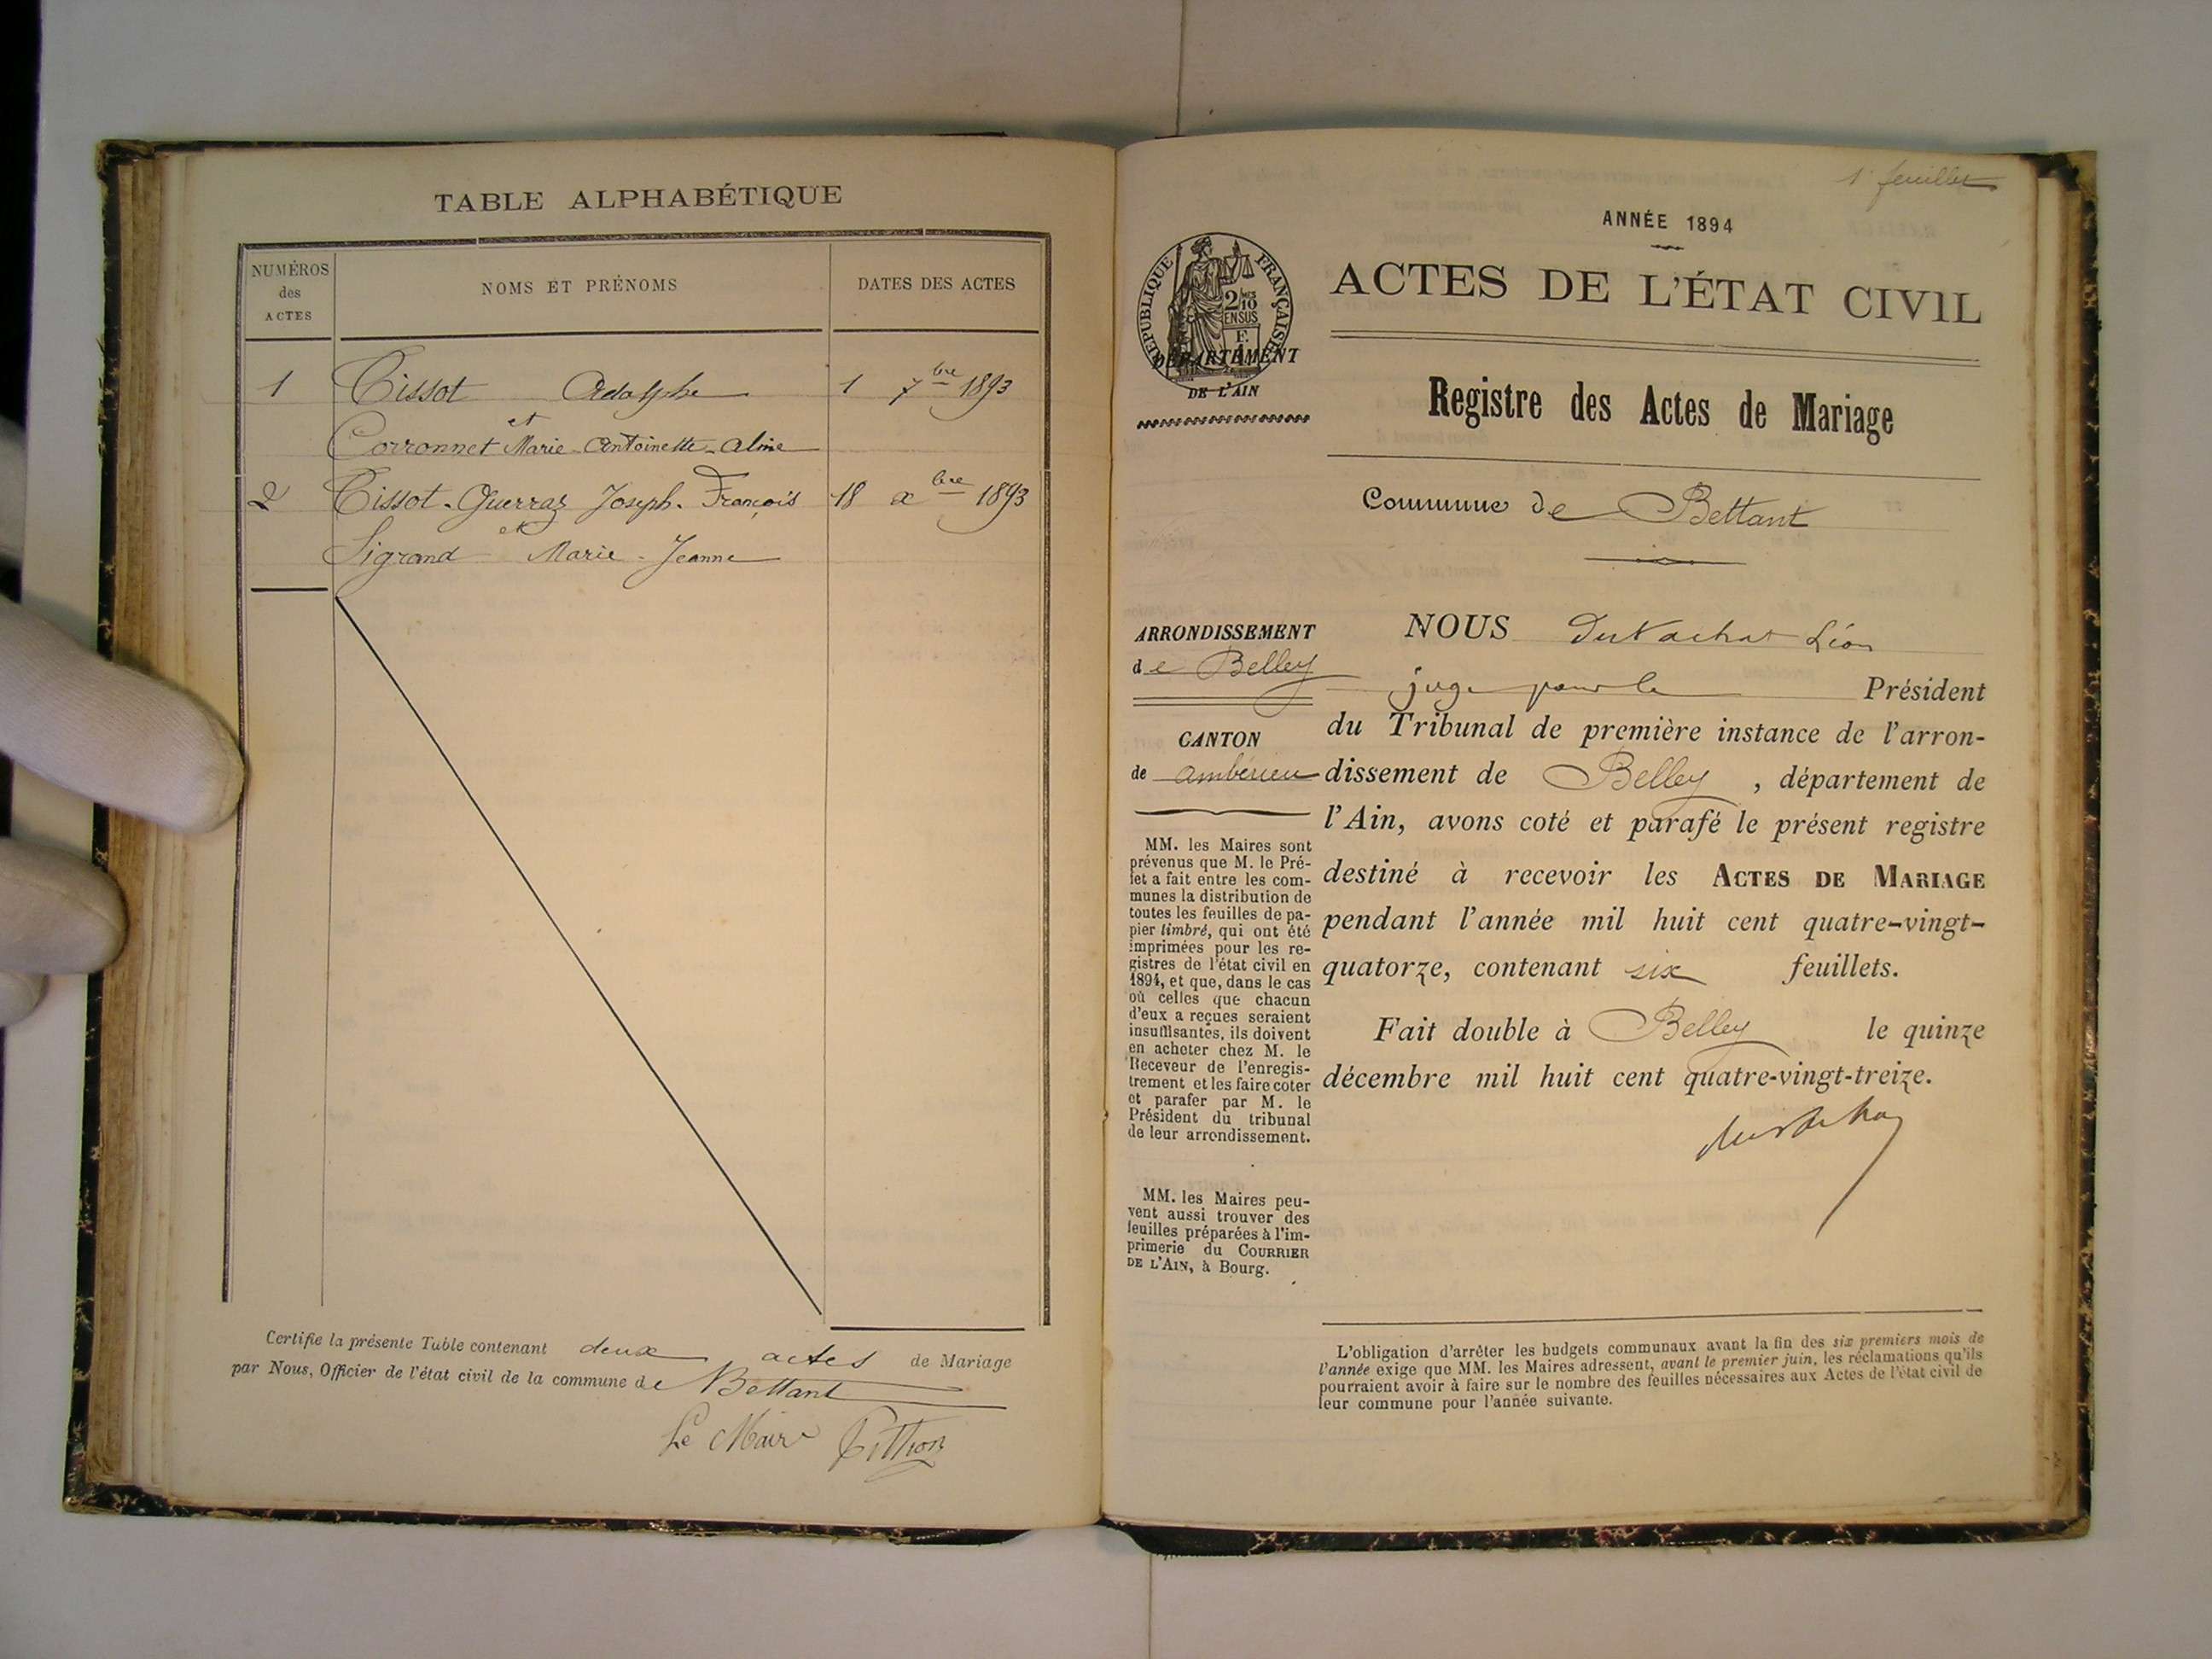 TABLE ALPHABÉTIQUE
NUMÉROS
des
ACTES
NOMS ET PRÉNOMS
DATES DES ACTES
1 Tissot Adolphe 1 7bre 1893
et
Corronnet Marie-Antoinette-Aline
2 Tissot-Guerraz Joseph-François 18 xbre 1893
et
Sigrand Marie-Jeanne
Certifie la présente Table contenant deux actes de Mariage
par Nous, Officier de l'état civil de la commune de Bettant
Le Maire
1r feuillet
ANNÉE 1894
RÉPUBLIQUE FRANÇAISE
DÉPARTEMENT
DE L'AIN
ACTES DE L'ÉTAT CIVIL
Registre des Actes de Mariage
Commune de Bettant
ARRONDISSEMENT
de Belley
CANTON
de Ambérieu
MM. les Maires sont
prévenus que M. le Pré-
fet a fait entre les com-
munes la distribution de
toutes les feuilles de pa-
pier timbré, qui ont été
imprimées pour les re-
gistres de l'état civil en
1894, et que, dans le cas
où celles que chacun
d'eux a reçues seraient
insuffisantes, ils doivent
en acheter chez M. le
Receveur de l'enregis-
trement et les faire coter
et parafer par M. le
Président du tribunal
de leur arrondissement.
MM. les Maires peu-
vent aussi trouver des
feuilles préparées à l'im-
primerie du COURRIER
DE L'AIN, à Bourg.
NOUS Léon
juge pour le Président
du Tribunal de première instance de l'arron-
dissement de Belley, département de
l'Ain, avons coté et parafé le présent registre
destiné à recevoir les ACTES DE MARIAGE
pendant l'année mil huit cent quatre-vingt-
quatorze, contenant six feuillets.
Fait double à Belley le quinze
décembre mil huit cent quatre-vingt-treize.
L'obligation d'arrêter les budgets communaux avant la fin des six premiers mois de
l'année exige que MM. les Maires adressent, avant le premier juin, les réclamations qu'ils
pourraient avoir à faire sur le nombre des feuilles nécessaires aux Actes de l'état civil de
leur commune pour l'année suivante.